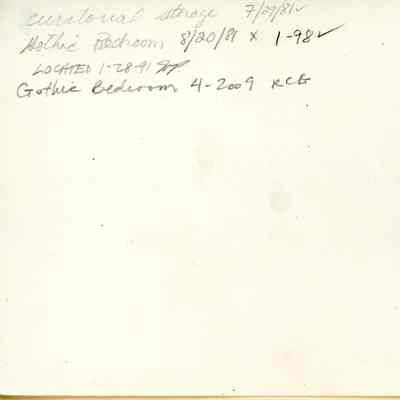 curatorial storage 7/29/81✓
Gothic Bedroom 8/20/81 x 1-98✓
LOCATED 1-28-91
Gothic Bedroom 4-2009 RCG